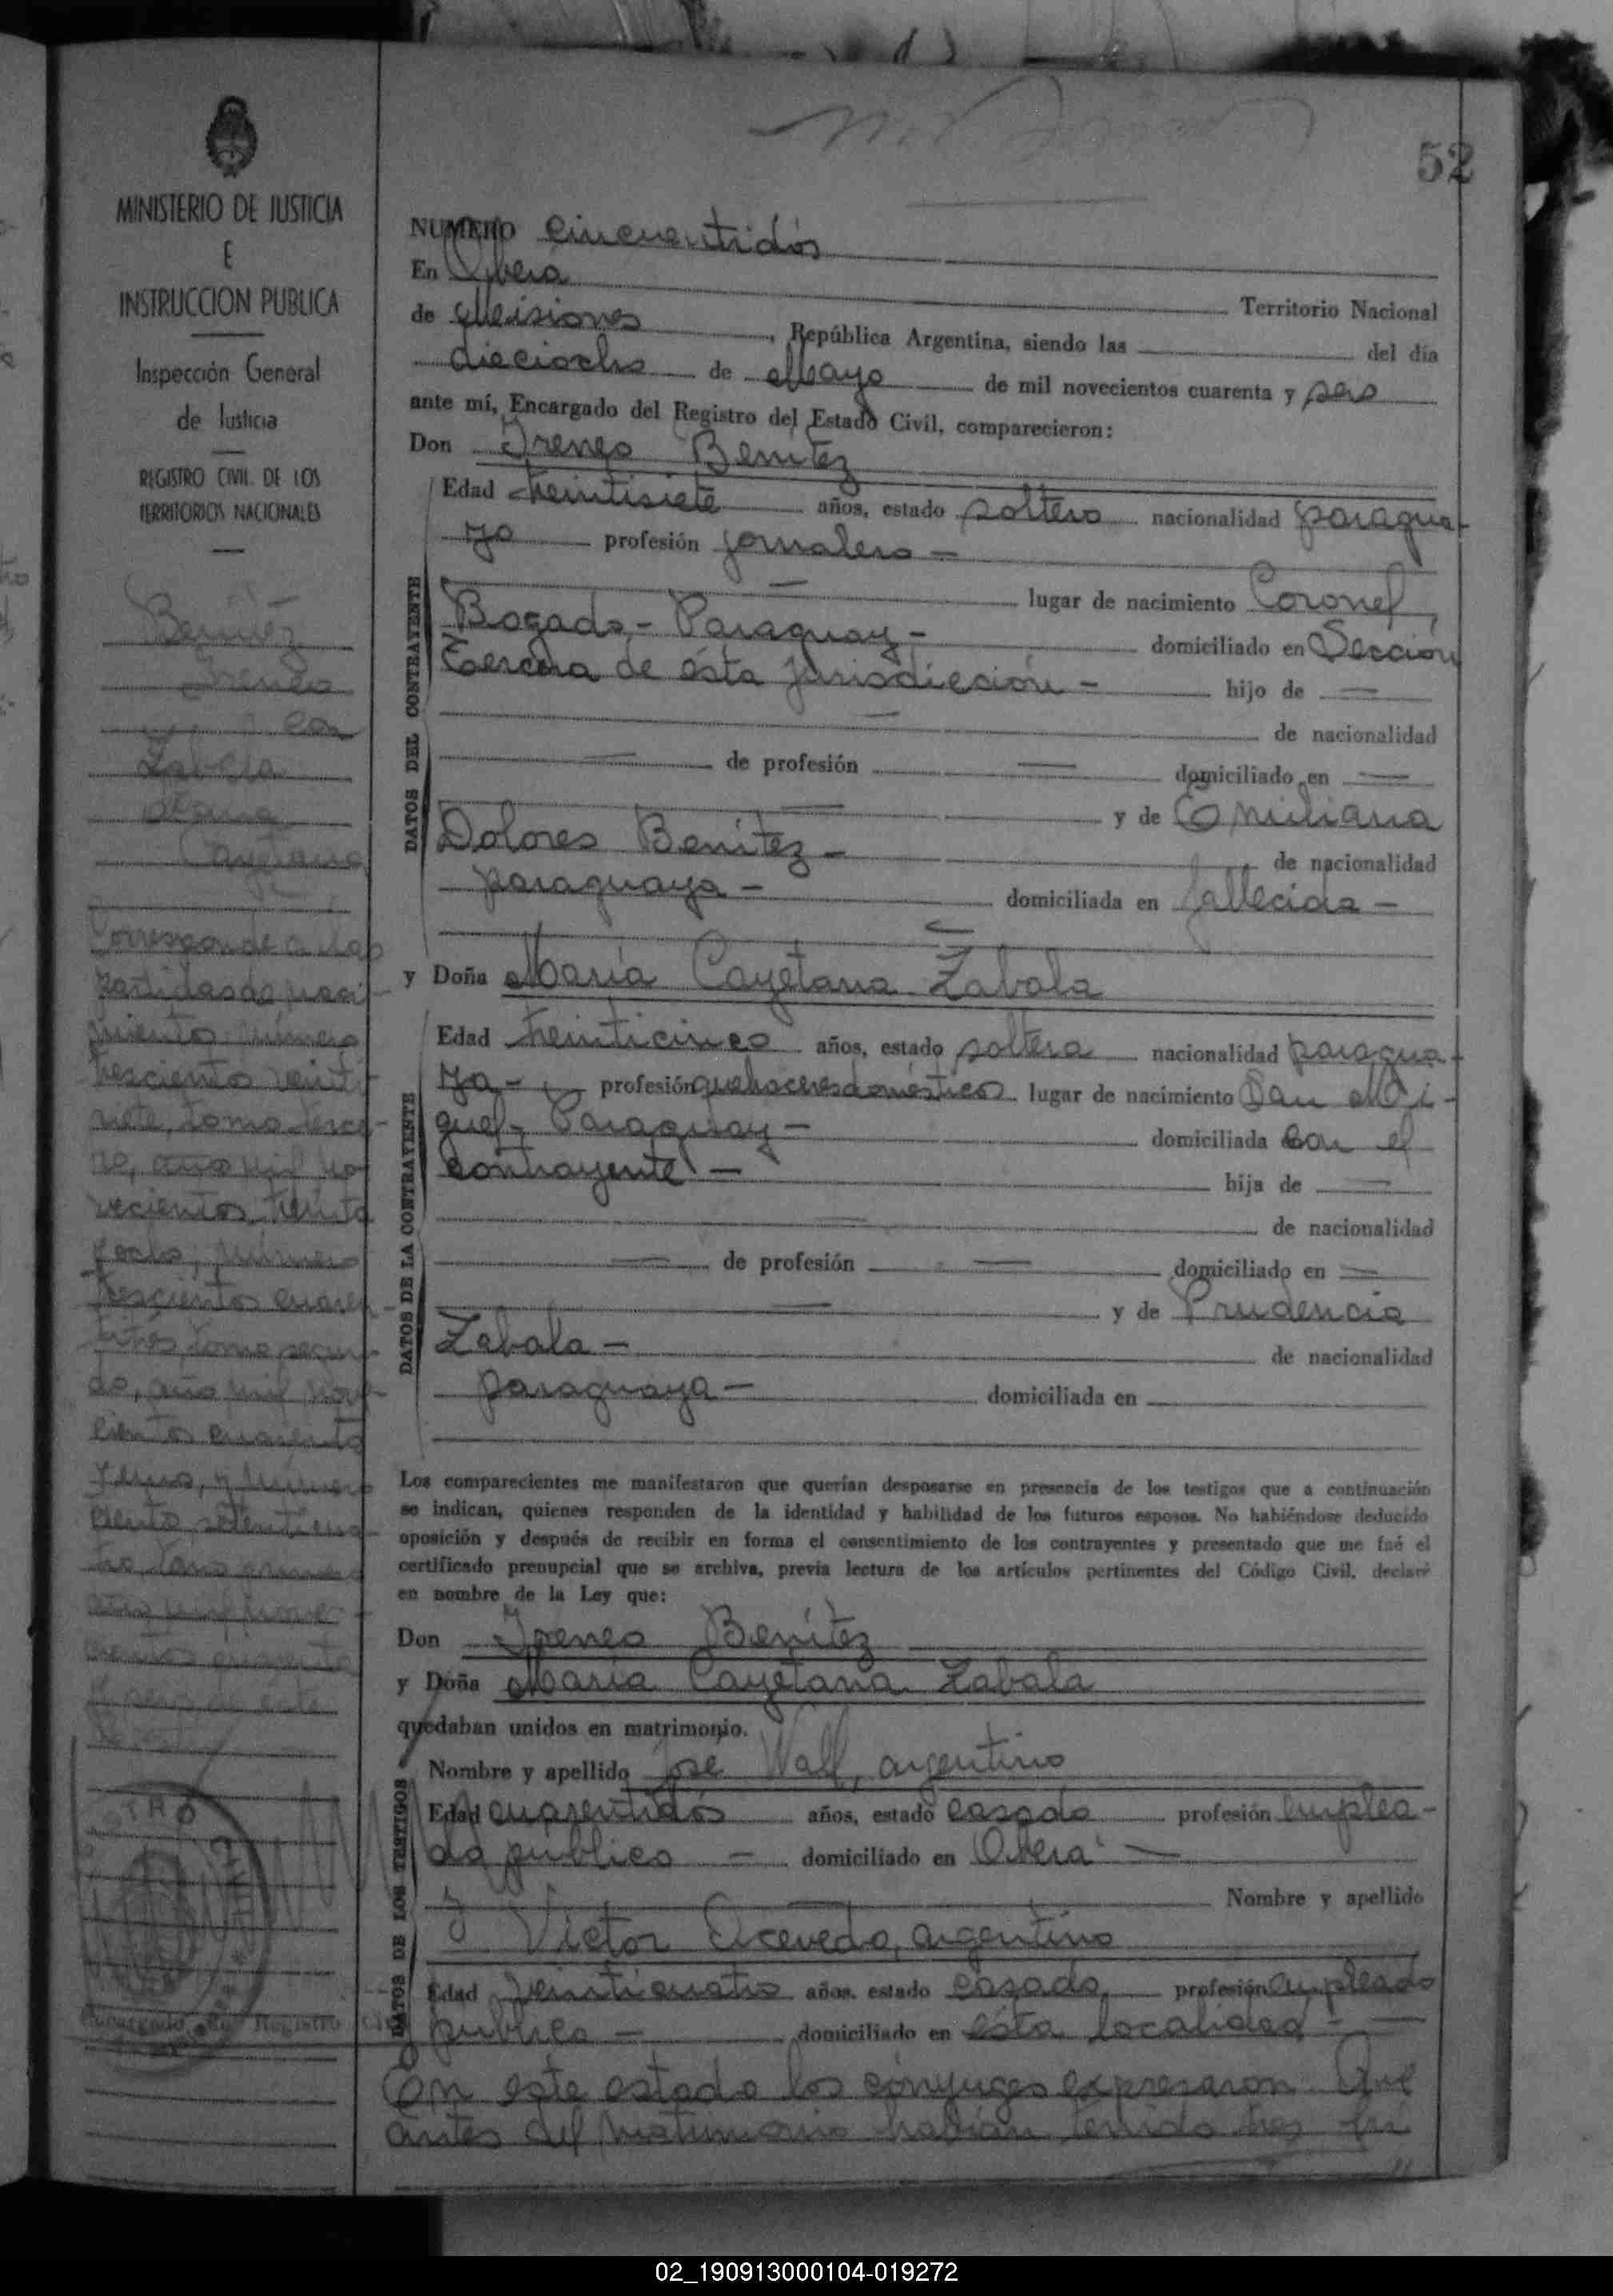 52
MINISTERIO DE JUSTICIA
E
INSTRUCCION PUBLICA
Inspección General
de Justicia
REGISTRO CIVIL DE LOS
TERRITORIOS NACIONALES
Benítez
Ireneo
con
Zabala
María
Cayetana
Corresponde a las
partidas de naci-
miento número
trescientos veinti
siete, tomo terce-
ro, año mil no-
vecientos treinta
y ocho, número
trescientos cuaren-
titrés, tomo segun-
do, año mil nove
cientos cuarenta
y uno, y número
ciento setenticua-
tro, tomo primero
año mil nove-
cientos cuarenta
y seis de este
NUMERO cincuentidós
En Oberá Territorio Nacional
de Misiones, República Argentina, siendo las del día
dieciocho de Mayo de mil novecientos cuarenta y seis
ante mí, Encargado del Registro del Estado Civil, comparecieron:
Don Ireneo Benítez
DATOS DEL CONTRAYENTE
Edad treintisiete años, estado soltero nacionalidad paragua-
yo profesión jornalero -
lugar de nacimiento Coronel
Bogado - Paraguay - domiciliado en Sección
Tercera de ésta jurisdicción - hijo de
de nacionalidad
de profesión domiciliado en
y de Emiliana
Dolores Benítez - de nacionalidad
paraguaya - domiciliada en fallecida -
y Doña María Cayetana Zabala
DATOS DE LA CONTRAYENTE
Edad treinticinco años, estado soltera nacionalidad paragua-
ya - profesión quehaceres domésticos lugar de nacimiento San Mi-
guel - Paraguay - domiciliada con el
contrayente - hija de
de nacionalidad
de profesión domiciliado en
y de Prudencia
Zabala - de nacionalidad
paraguaya - domiciliada en
Los comparecientes me manifestaron que querían desposarse en presencia de los testigos que a continuación
se indican, quienes responden de la identidad y habilidad de los futuros esposos. No habiéndose deducido
oposición y después de recibir en forma el consentimiento de los contrayentes y presentado que me fué el
certificado prenupcial que se archiva, previa lectura de los artículos pertinentes del Código Civil, declaré
en nombre de la Ley que:
Don Ireneo Benítez
y Doña María Cayetana Zabala
quedaban unidos en matrimonio.
DATOS DE LOS TESTIGOS
Nombre y apellido José Wall, argentino
Edad cuarentidós años, estado casado profesión emplea-
do público - domiciliado en Oberá -
y Nombre y apellido
Victor Acevedo, argentino
Edad veinticuatro años, estado casado, profesión empleado
público - domiciliado en ésta localidad -
En este estado los cónyuges expresaron: Que
antes del matrimonio habían tenido tres hi
Encargado del Registro Civil
02_190913000104-019272